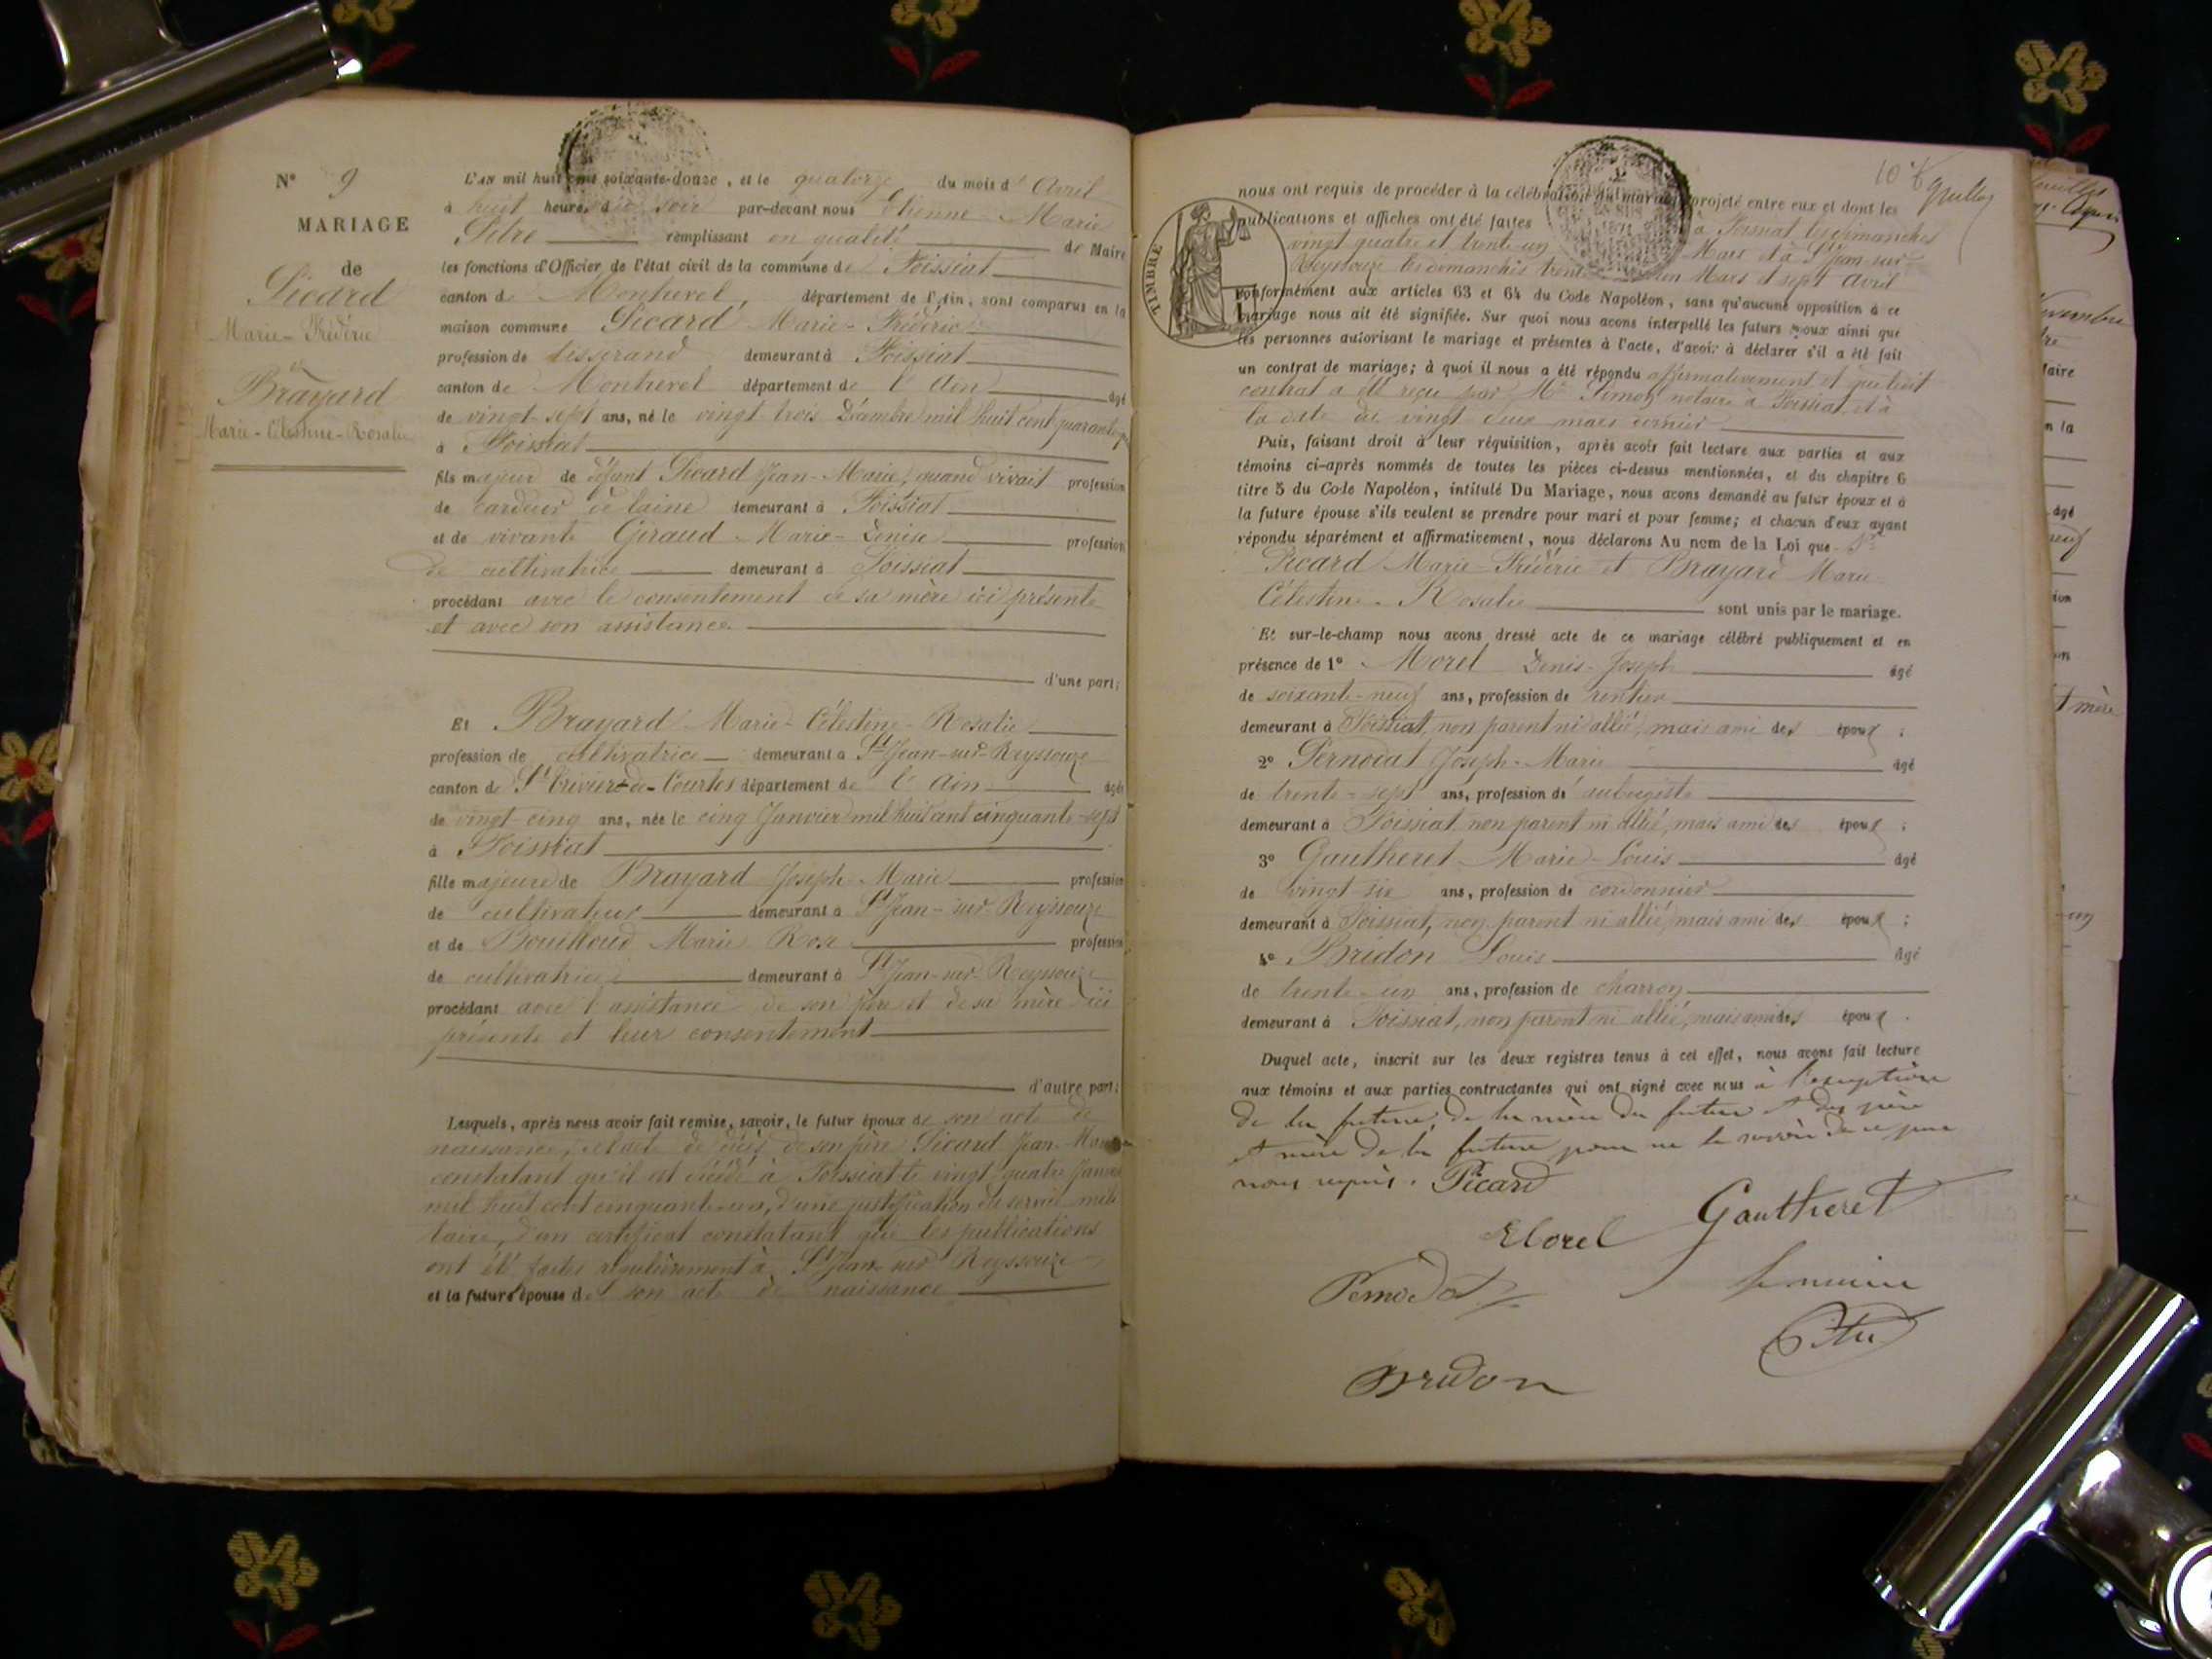 N° 9
MARIAGE
de
Picard
Marie-Frédéric
et
Brayard
Marie-Célestine-Rosalie
L'AN mil huit cent soixante-douze, et le quatorze du mois d'Avril
à huit heures du soir par-devant nous Etienne Marie
Pitre remplissant en qualité de Maire
les fonctions d'Officier de l'état civil de la commune de Foissiat
canton de Montrevel, département de l'Ain, sont comparus en la
maison commune Picard Marie-Frédéric
profession de tisserand demeurant à Foissiat
canton de Montrevel département de l'Ain âgé
de vingt-sept ans, né le vingt-trois Décembre mil huit cent quarante
à Foissiat
fils majeur de défunt Picard Jean-Marie, quand vivait profession
de cardeur de laine demeurant à Foissiat
et de vivante Giraud Marie-Denise profession
de cultivatrice demeurant à Foissiat
procédant avec le consentement de sa mère ici présente
et avec son assistance.
d'une part;
Et Brayard Marie-Célestine-Rosalie
profession de cultivatrice demeurant à St Jean-sur-Reyssouze
canton de St Trivier-de-Courtes département de l'Ain âgée
de vingt cinq ans, née le cinq Janvier mil huit cent cinquante-sept
à Foissiat
fille majeure de Brayard Joseph Marie profession
de cultivateur demeurant à St Jean-sur-Reyssouze
et de Bouilloud Marie Rose profession
de cultivatrice demeurant à St Jean-sur-Reyssouze
procédant avec l'assistance de son père et de sa mère ici
présents et leur consentement
d'autre part;
Lesquels, après nous avoir fait remise, savoir, le futur époux de son acte de
naissance, et acte de décès de son père Picard Jean-Marie
constatant qu'il est décédé à Foissiat le vingt quatre Janvier
mil huit cent cinquante-un, d'une justification du service mili
taire, d'un certificat constatant que les publications
ont été faites régulièrement à St Jean-sur-Reyssouze
et la future épouse de son acte de naissance
10e
nous ont requis de procéder à la célébration du mariage projeté entre eux et dont les
publications et affiches ont été faites à Foissiat les dimanches
vingt quatre et trente-un Mars et à St Jean-sur-
Reyssouze les dimanches trente-un Mars et sept Avril
TIMBRE
conformément aux articles 63 et 64 du Code Napoléon, sans qu'aucune opposition à ce
mariage nous ait été signifiée. Sur quoi nous avons interpellé les futurs époux ainsi que
les personnes autorisant le mariage et présentes à l'acte, d'avoir à déclarer s'il a été fait
un contrat de mariage; à quoi il nous a été répondu affirmativement et que ledit
contrat a été reçu par Me Simon notaire à Foissiat, et à
la date du vingt deux mars dernier
Puis, faisant droit à leur réquisition, après avoir fait lecture aux parties et aux
témoins ci-après nommés de toutes les pièces ci-dessus mentionnées, et du chapitre 6
titre 5 du Code Napoléon, intitulé Du Mariage, nous avons demandé au futur époux et à
la future épouse s'ils veulent se prendre pour mari et pour femme; et chacun d'eux ayant
répondu séparément et affirmativement, nous déclarons Au nom de la Loi que
Picard Marie-Frédéric et Brayard Marie
Célestine-Rosalie sont unis par le mariage.
Et sur-le-champ nous avons dressé acte de ce mariage célébré publiquement et en
présence de 1° Morel Denis-Joseph âgé
de soixante-neuf ans, profession de rentier
demeurant à Foissiat, non parent ni allié, mais ami des époux;
2° Pernodat Joseph-Marie âgé
de trente-sept ans, profession de aubergiste
demeurant à Foissiat non parent ni allié, mais ami des époux;
3° Gautheret Marie-Louis âgé
de vingt six ans, profession de cordonnier
demeurant à Foissiat, non parent ni allié, mais ami des époux;
4° Bridon Louis âgé
de trente-un ans, profession de charron
demeurant à Foissiat, non parent ni allié, mais ami des époux.
Duquel acte, inscrit sur les deux registres tenus à cet effet, nous avons fait lecture
aux témoins et aux parties contractantes qui ont signé avec nous à l'exception
de la future, de la mère du futur et des père
et mère de la future pour ne le savoir de ce par
nous requis. Picard
Morel Gautheret
Pernodat le maire
Pitre
Bridon